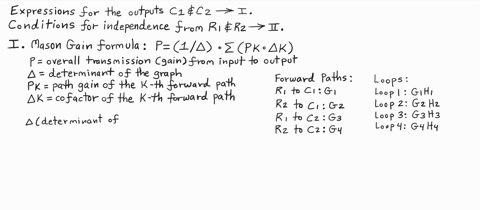 Expressions for the outputs C1 & C2 → I.
Conditions for independence from R1 & R2 → II.
I. Mason Gain formula: P=(1/Δ) • Σ (PK•ΔK)
P = overall transmission (gain) from input to output
Δ = determinant of the graph
PK = path gain of the K-th forward path
ΔK = cofactor of the K-th forward path
Δ (determinant of
Forward Paths:
R1 to C1: G1
R2 to C1: G2
R1 to C2: G3
R2 to C2: G4
Loops:
Loop 1: G1H1
Loop 2: G2H2
Loop 3: G3H3
Loop 4: G4H4